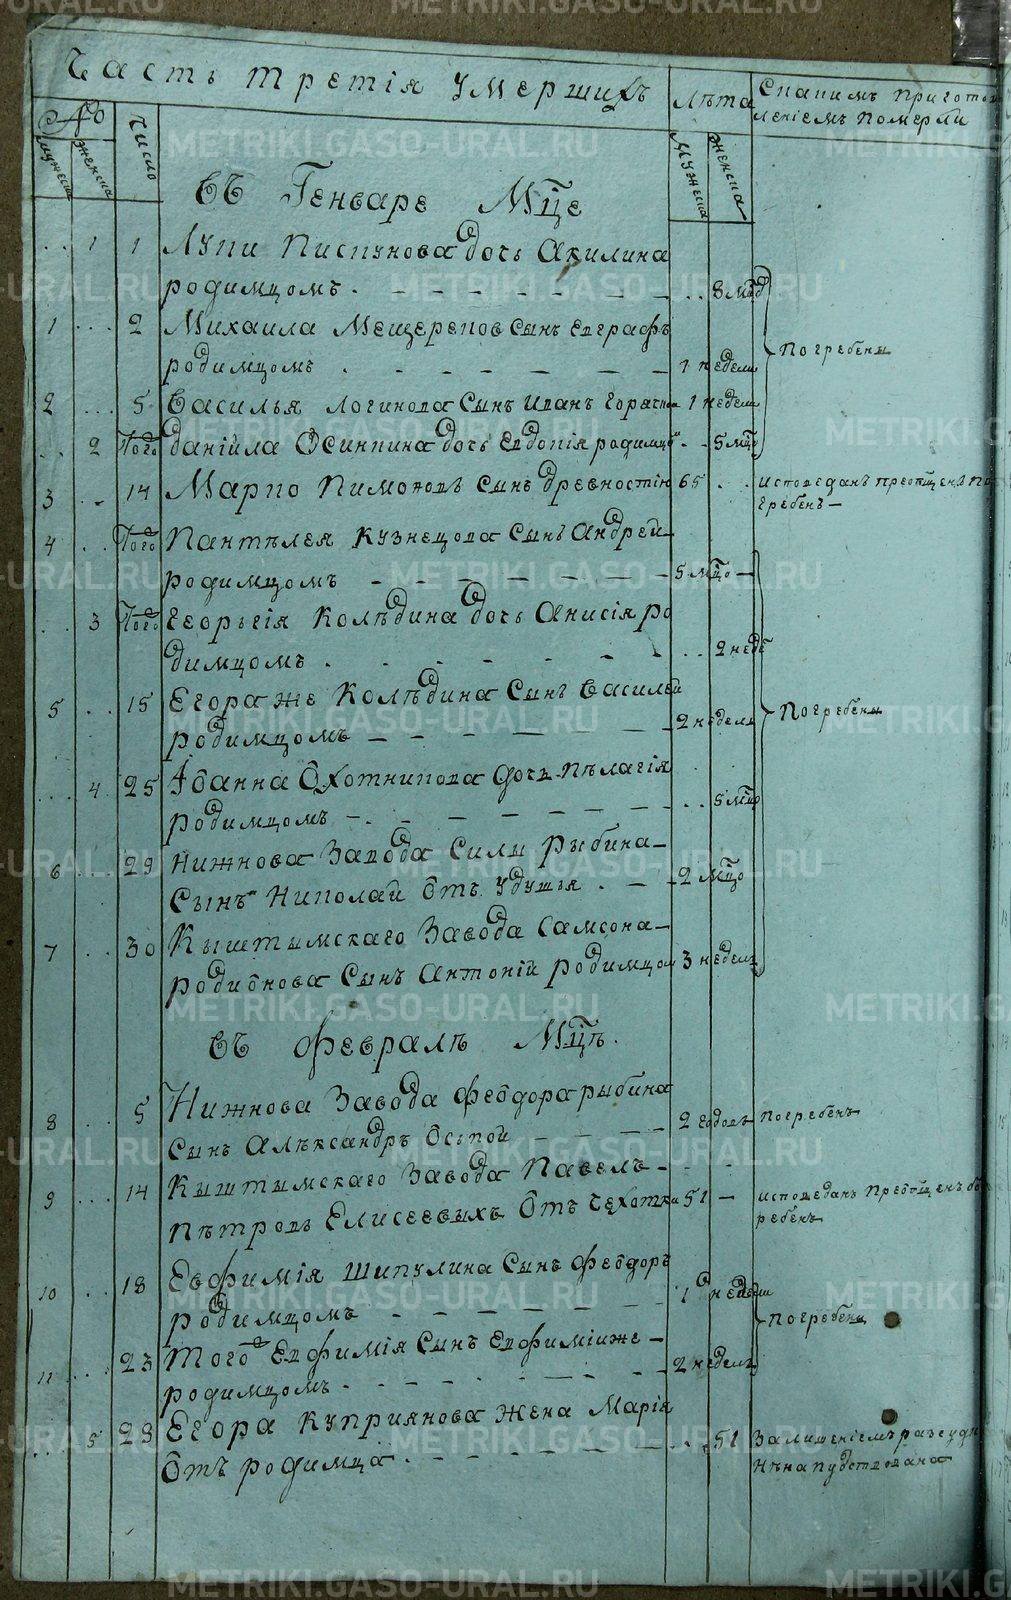 Часть третія умершихъ
Лѣта
Съ какимъ приготов
леніемъ померли
№
мужеска
женска
число
мужеска
женска
въ Генваре Мцѣ
.. 1 1 Луки Пискунова дочь Акилина
родимцомъ . . . 8 мцовъ
1 ... 2 Михаила Мещерекова сынъ Евграфъ
родимцомъ . 1 недели
Погребены
2 ... 5 Василья Логинова сынъ Иванъ горячкой 1 недели
.. 2 того Даніила Осинкина дочь Евдокія родимцо .. 5 мцовъ
3 .. 14 Марко Пимоновъ сынъ древностію 65 ..
исповеданъ преобщенъ по
гребенъ
4 .. того Пантѣлея Кузнецова сынъ Андрей
родимцомъ 5 мцо
.. 3 того Георьгія Колѣдина дочь Анисія ро
димцомъ . .. 2 неде
5 .. 15 Егора же Колѣдина сынъ Василей
родимцомъ 2 недель
Погребены
... 4 25 Іоанна Охотникова дочь Пѣлагія
родимцомъ .. 5 мцо
6 .. 29 Нижнова Завода Силы Рыбина
сынъ Николай отъ удушья . 2 мцо
7 .. 30 Кыштымскаго Завода Самсона
Родионова сынъ Антоній родимцом 3 недель
въ Февралѣ Мцѣ.
8 .. 5 Нижнова Завода Феодора Рыбина
сынъ Алѣксандръ оспой 2 годовъ Погребенъ
9 ... 14 Кыштымскаго Завода Павелъ
Пѣтровъ Елисеевыхъ отъ чехотки 51
исповеданъ преобщенъ
ребенъ
10 .. 18 Евфимія Шипулина сынъ Феодоръ
родимцомъ 1 недели
Погребены
11 ... 23 Того Евфимія сынъ Евфимій же
родимцомъ . 2 недель
... 5 23 Егора Куприянова жена Марія
отъ родимца . .. 51
За лишеніемъ разсудк
Не напутствована
METRIKI.GASO-URAL.RU